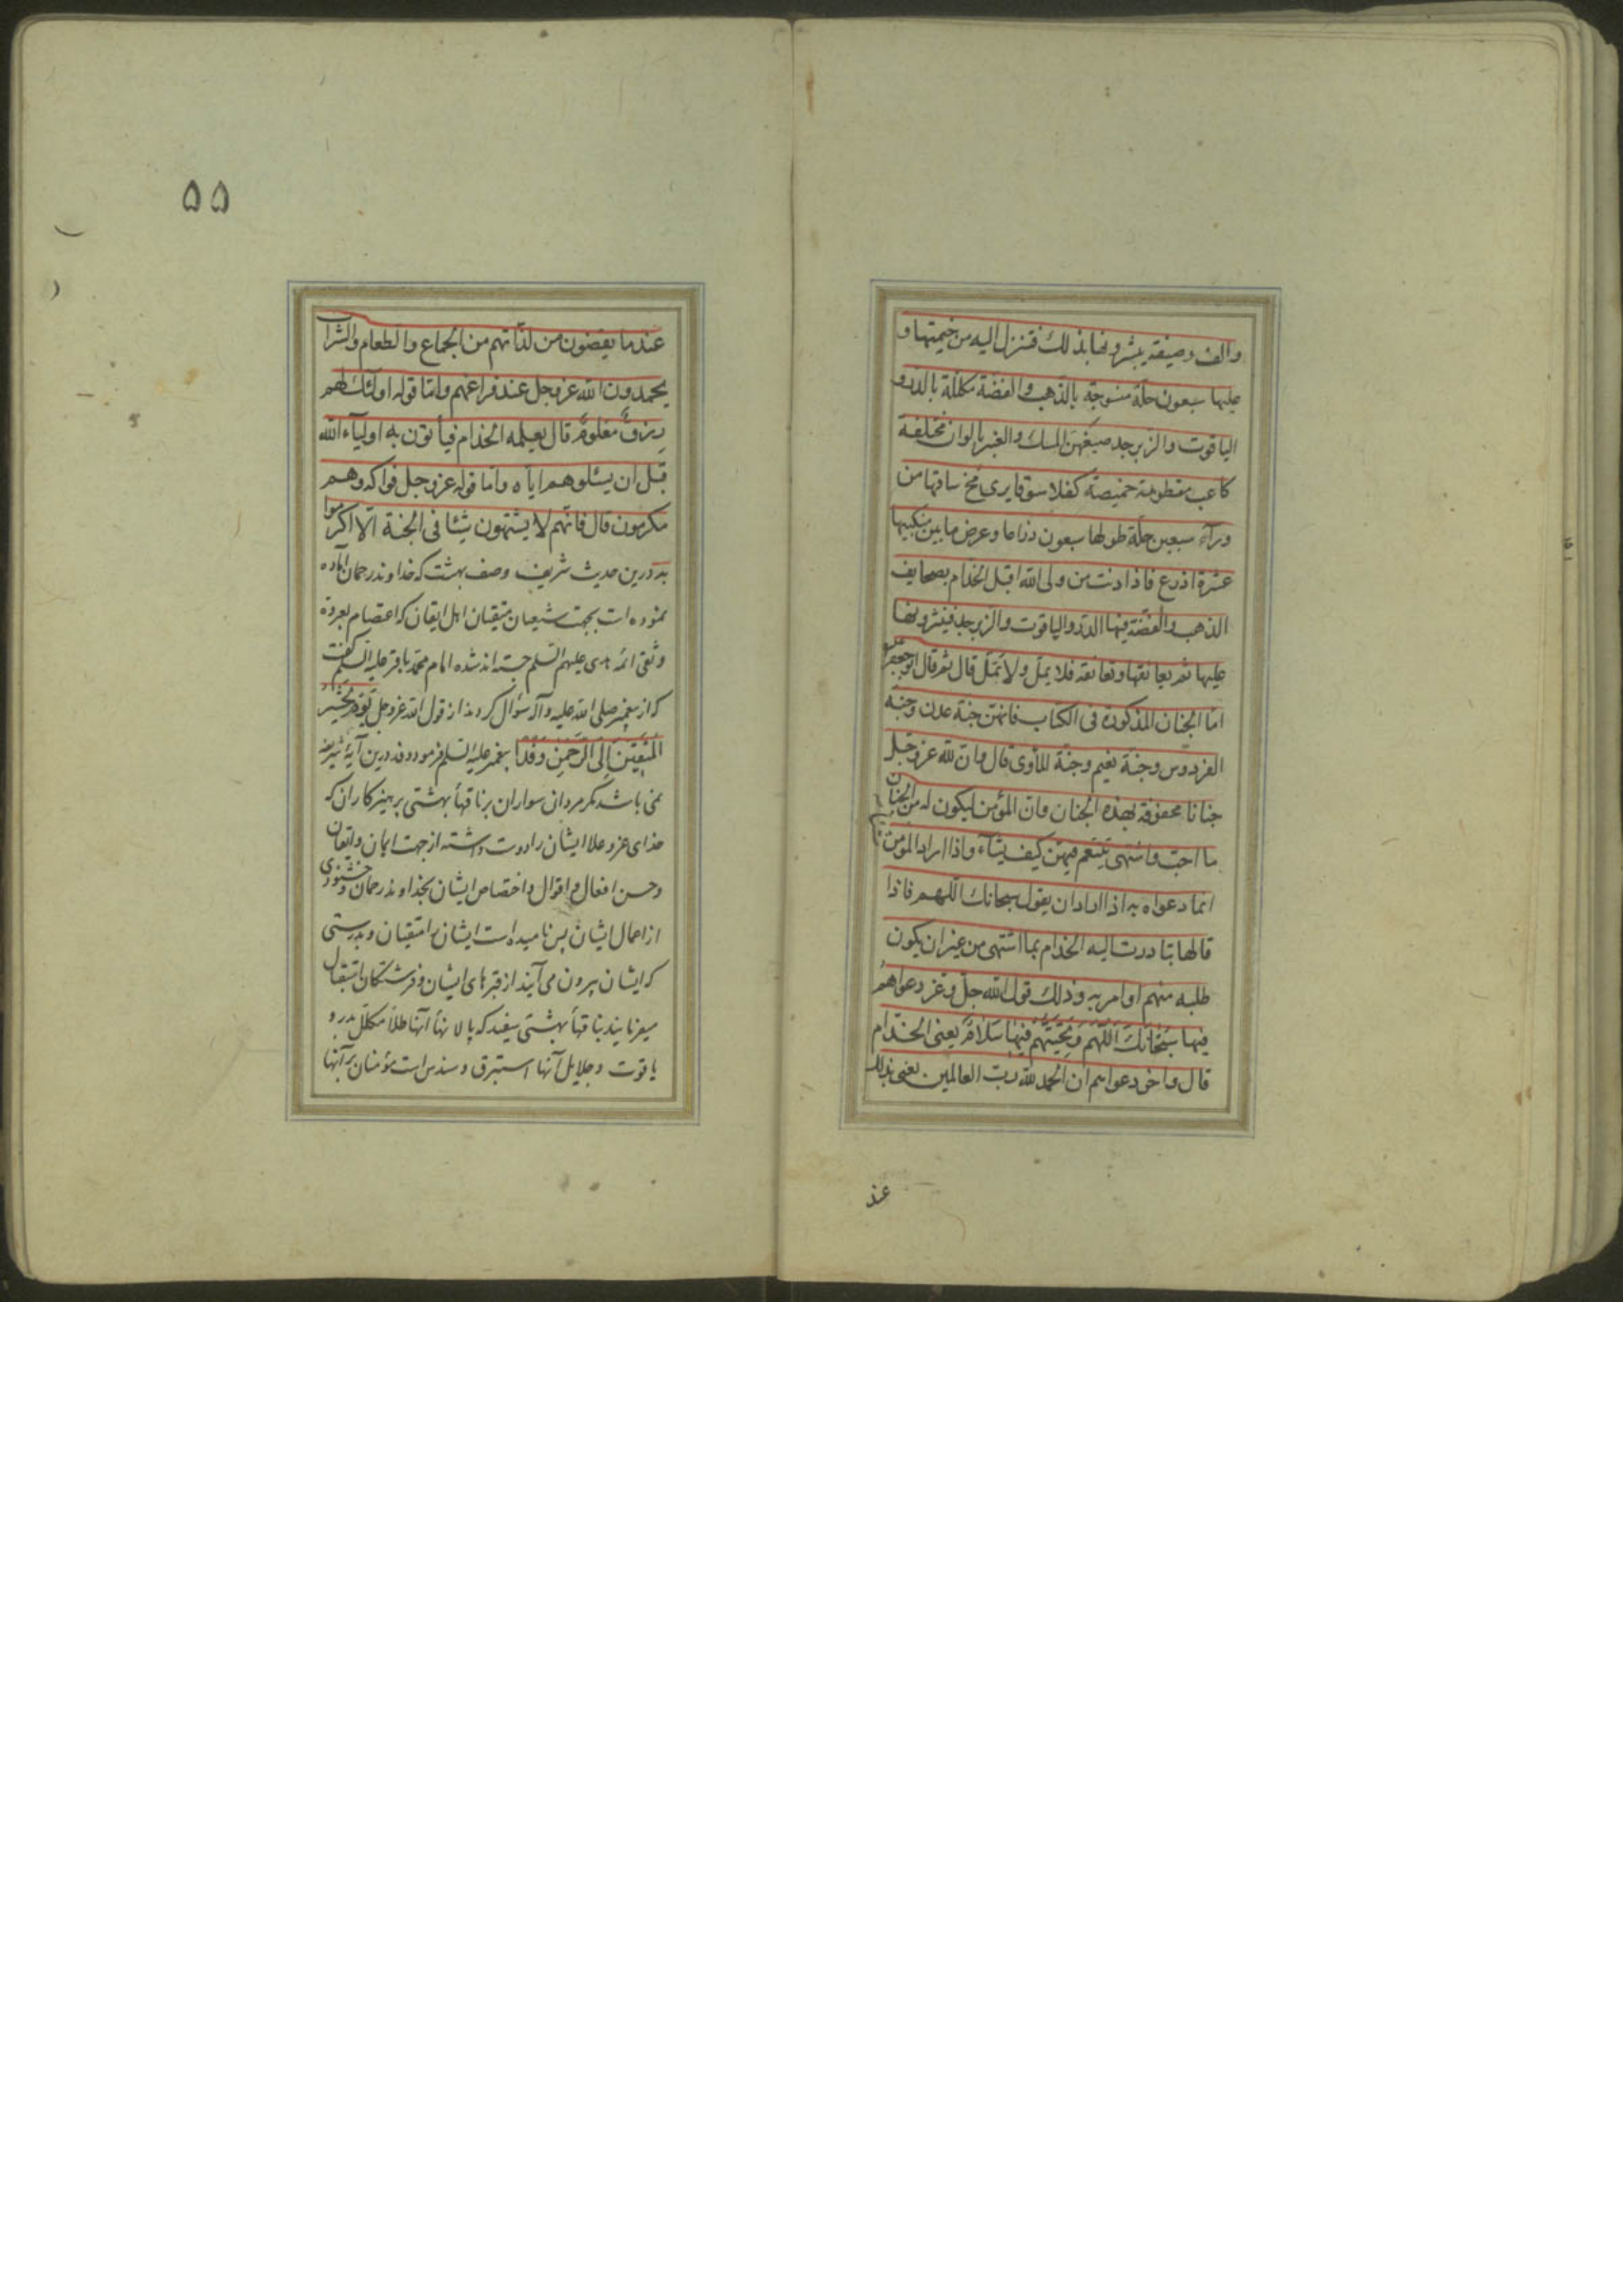 والف وصیفة یبشرونها بذلک فتنزل الیه من خیمتها و
علیها سبعون حلة منسوجة بالذهب والفضة مکللة بالدر و
الیاقوت والزبرجد صبغهن المسک والعنبر بالوان مختلفة
کاعب مقطومة خمیصة کفلا سوقا یری مخ ساقها من
ورآء سبعین حلة طولها سبعون ذراعا وعرض ما بین منکبیها
عشرة اذرع فاذا دنت من ولی الله اقبل الخدام بصحایف
الذهب والفضة فیها الدر والیاقوت والزبرجد فینثرونها
علیها ثم یعانقها وتعانقه فلا یمل ولا تمل قال ثم قال ابو جعفر
اما الجنان المذکورة فی الکتاب فانهن جنة عدن وجنة
الفردوس وجنة نعیم وجنة المأوی قال وان لله عز وجل
جنانا محفوفة بهذه الجنان وان المؤمن لیکون له من الجنان
ما احب واشتهی یتنعم فیهن کیف یشآء واذا اراد المؤمن
انما دعواه به اذا اراد ان یقول سبحانک اللهم فاذا
قالها تبادرت الیه الخدام بما اشتهی من غیر ان یکون
طلبه منهم او امر به وذلک قول الله جل وعز دعواهم
فیها سُبْحَانَکَ اللّٰهُمَّ وَتَحِیَّتُهُمْ فِیهَا سَلَامٌ یعنی الخدام
قال واخر دعواهم ان الحمد لله رب العالمین یعنی بذلک
عند
۵۵
عندما یقضون من لذاتهم من الجماع والطعام والشراب
یحمدون الله عز وجل عند فراغهم واما قوله اولئک لهم
رِزقٌ مَعْلُومٌ قال یعلمه الخدام فیأتون به اولیآء الله
قبل ان یسئلوهم ایاه واما قوله عز وجل فواکه وهم
مکرمون قال فانهم لا یشتهون شیئا فی الجنة الا اکرموا
به درین حدیث شریف وصف بهشت که خداوند رحمان آماده
نموده است بجهت شیعیان متقیان اهل ایقان که اعتصام بعروة
وثقی ائمه هدی علیهم السلم جسته اند شده امام محمد باقر علیه السلم گفت
که از پیغمبر صلی الله علیه وآله سؤال کردند از قول الله عز وجل یَوْمَ نَحْشُرُ
الْمُتَّقِینَ اِلَی الرَّحْمٰنِ وَفْدًا پیغمبر علیه السلم فرمود وفد درین آیه شریفه
نمی باشد مگر مردان سواران بر ناقهأ بهشتی پرهیزکاران که
خدای عز وعلا ایشان را دوست داشته از جهت ایمان وایقان
وحسن افعال و اقوال و اختصاص ایشان بخداوند رحمان وخشنودی
از اعمال ایشان پس نامیده است ایشان را متقیان وبدرستی
که ایشان بیرون می آیند از قبرهای ایشان وفرشتگان استقبال
میفرمایند بناقهأ بهشتی سفید که پالانهأ آنها طلا مکلل بدر و
یاقوت وجلایل آنها استبرق وسندس است مؤمنان بر آنها